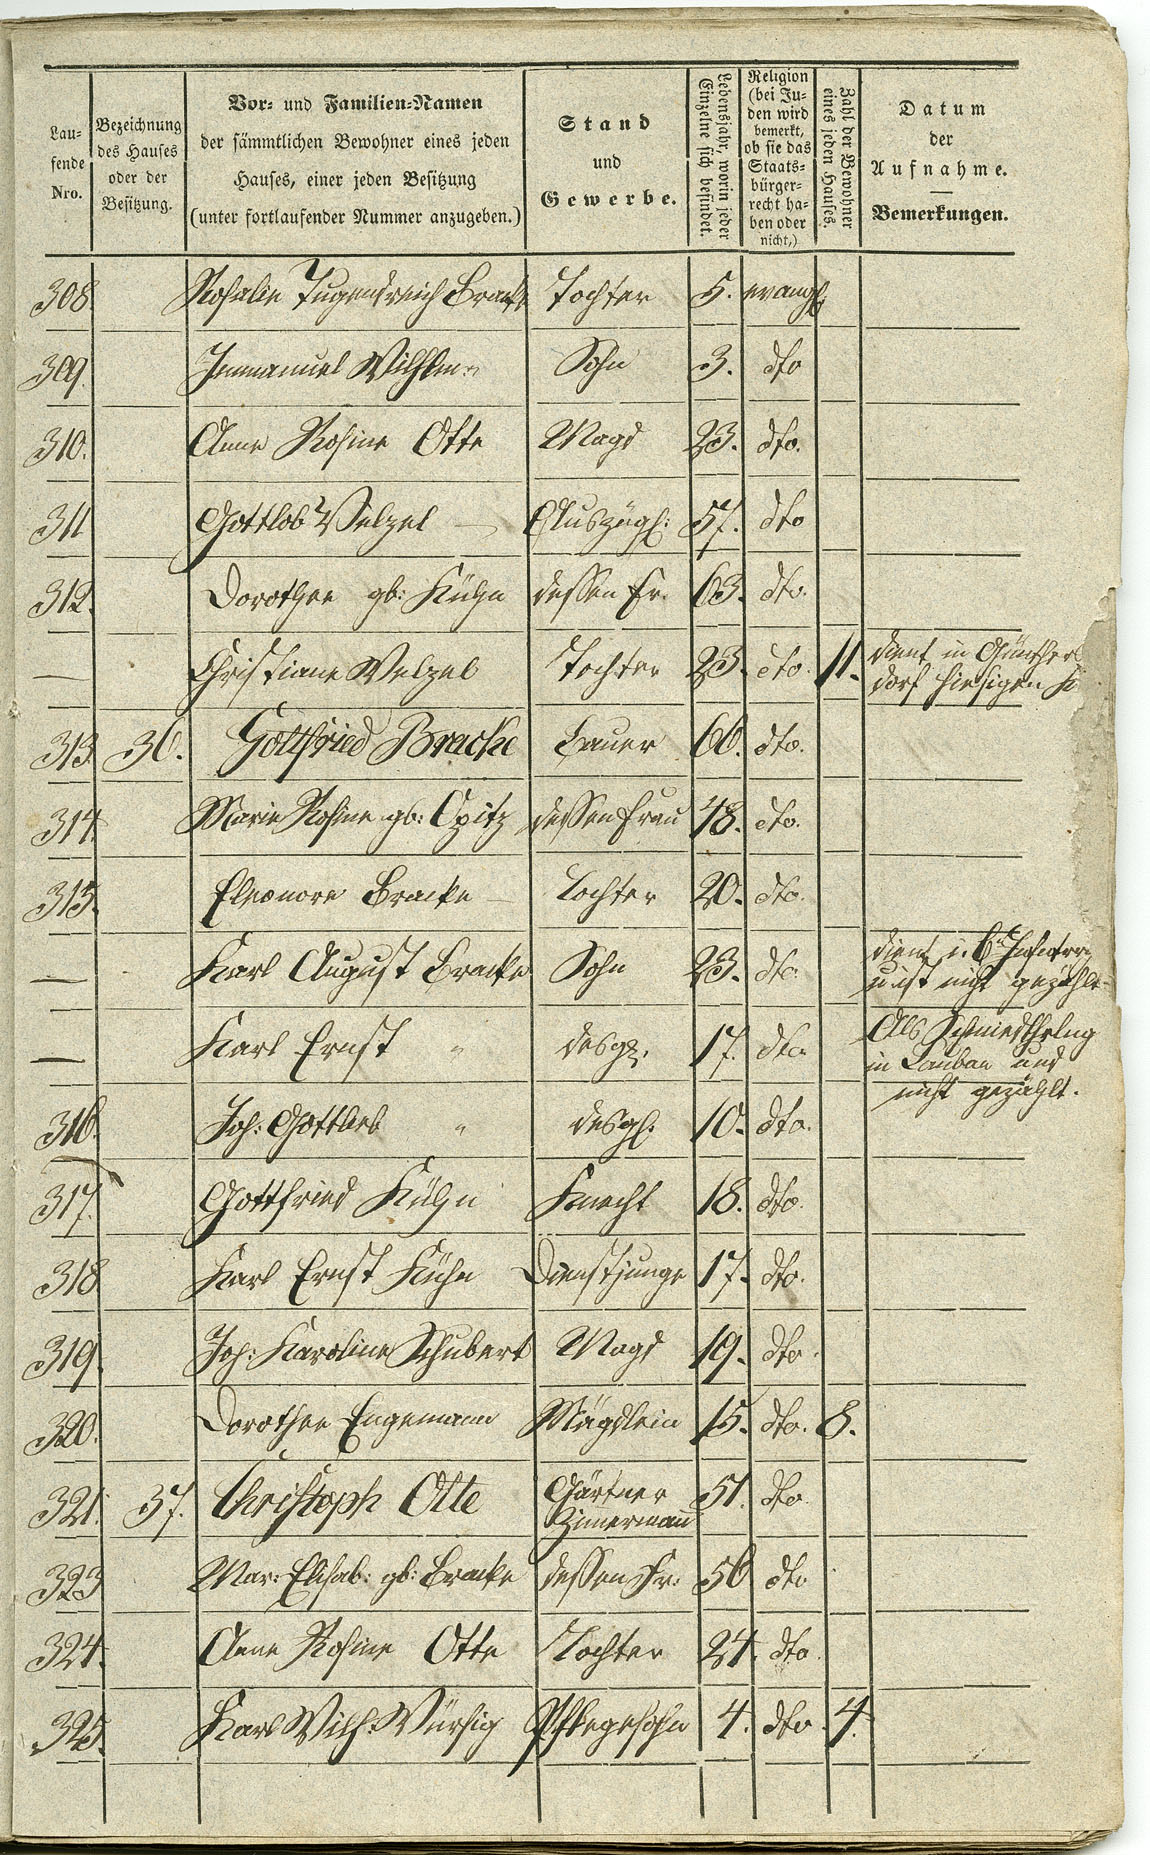 Lau-
fende
Nro.
Bezeichnung
des Hauses
oder der
Besitzung.
Vor- und Familien-Namen
der sämmtlichen Bewohner eines jeden
Hauses, einer jeden Besitzung
(unter fortlaufender Nummer anzugeben.)
Stand
und
Gewerbe.
Lebensjahr, worin jeder
Einzelne sich befindet.
Religion
(bei Ju-
den wird
bemerkt,
ob sie das
Staats-
bürger-
recht ha-
ben oder
nicht,)
Zahl der Bewohner
eines jeden Hauses.
Datum
der
Aufnahme.
Bemerkungen.
308. Rosalie Tugendreich Bracke Tochter 5. evangl.
309. Immanuel Wilhelm " Sohn 3. dto
310. Anne Rosine Otte Magd 23. dto.
311 Gottlob Welzel — Auszügl: 57. dto
312. Dorothea gb: Kühn dessen Fr. 63. dto.
— Christiane Welzel Tochter 23. dto. 11. dient in Günthers
dorf hiesigen
313. 36. Gottfried Bracke Bauer 66. dto.
314. Marie Rosine gb: Opitz dessen Frau 48. dto.
315. Eleonore Bracke — Tochter 20. dto.
— Karl August Bracke Sohn 23. dto. dient i. 6t Infantr.
u ist nicht gezählt
— Karl Ernst " desgl. 17. dto. Als Schmiedthrlng
in Lauban und
nicht gezählt.
316. Joh: Gottlieb " desgl. 10. dto.
317. Gottfried Kühn Knecht 18. dto.
318 Karl Ernst Kühn Dienstjunge 17. dto.
319. Joh: Karoline Schubert Magd 19. dto.
320. Dorothea Engemann Mägdlein 15. dto. 8.
321. 37. Christoph Otte Gärtner
Zimermañ 51. dto.
323 Mar: Elisab: gb: Bracke dessen Fr: 56 dto
324. Anne Rosine Otte Tochter 24. dto.
325. Karl Wilh. Würsig Pflegesohn 4. dto. 4.